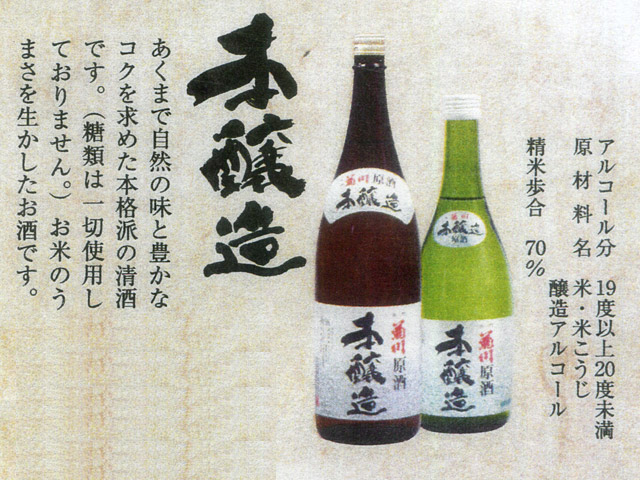 アルコール分 19度以上20度未満
原材料名 米・米こうじ
醸造アルコール
精米歩合 70%
菊川 原酒
本醸造
菊川
本醸造
原酒
菊川 原酒
本醸造
菊川 原酒
本醸造
本醸造
あくまで自然の味と豊かな
コクを求めた本格派の清酒
です。（糖類は一切使用し
ておりません。）お米のう
まさを生かしたお酒です。